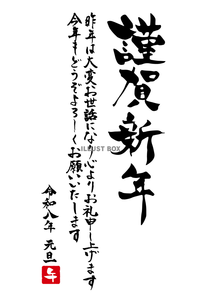 謹賀新年
昨年は大変お世話になり心よりお礼申し上げます
今年もどうぞよろしくお願いいたします
令和八年 元旦
午
ILLUST BOX